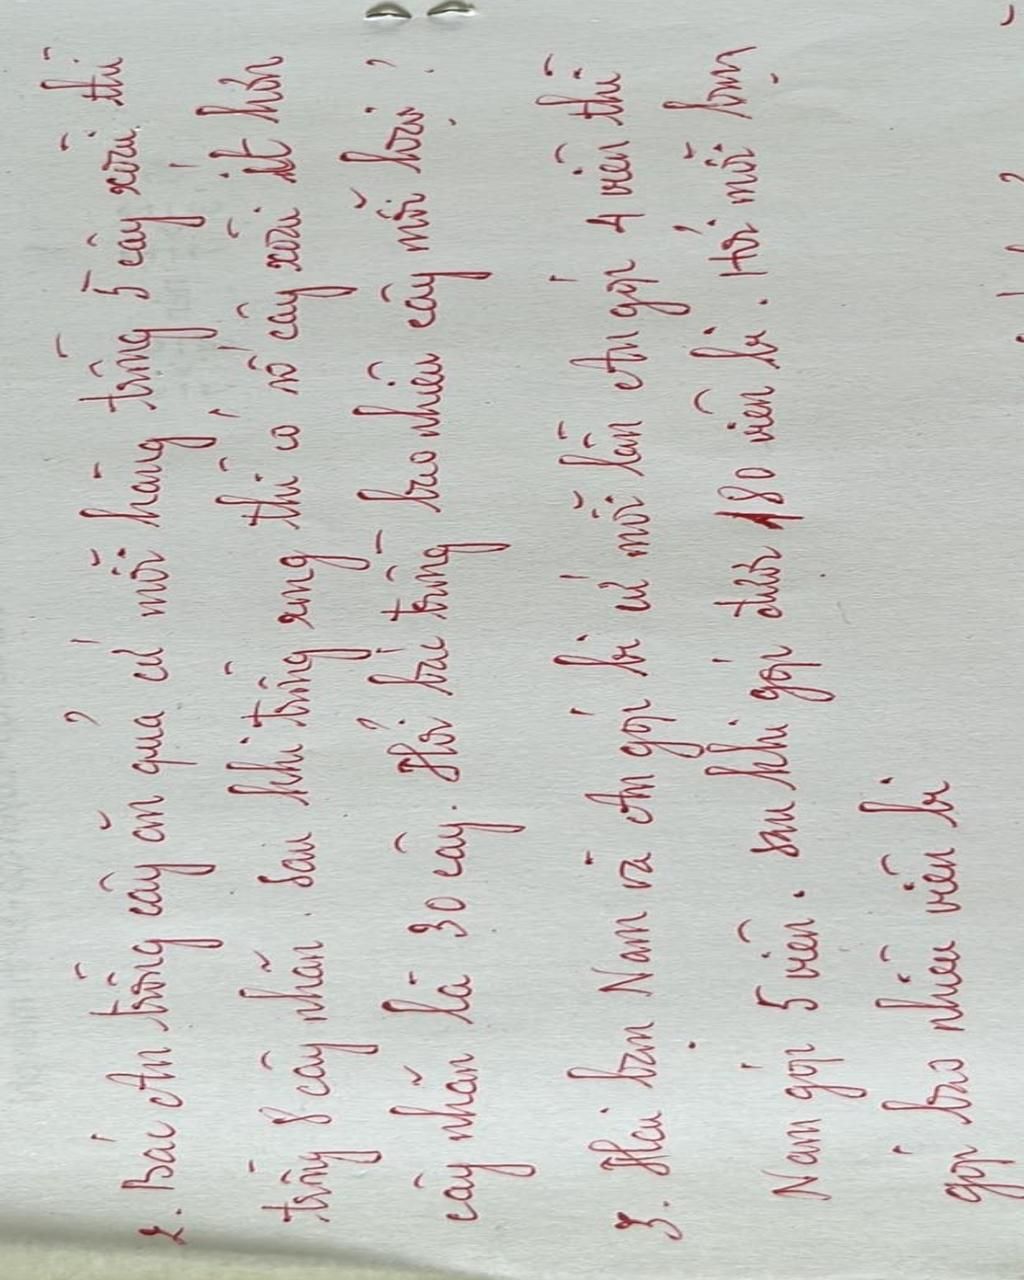 2. Bác An trồng cây ăn quả cứ mỗi hàng trồng 5 cây xoài thì
trồng 8 cây nhãn. Sau khi trồng xong thì có số cây xoài ít hơn
cây nhãn là 30 cây. Hỏi bác trồng bao nhiêu cây mỗi loại?
3. Hai bạn Nam và An góp bi cứ mỗi lần An góp 4 viên thì
Nam góp 5 viên. sau khi góp được 180 viên bi. Hỏi mỗi bạn
góp bao nhiêu viên bi